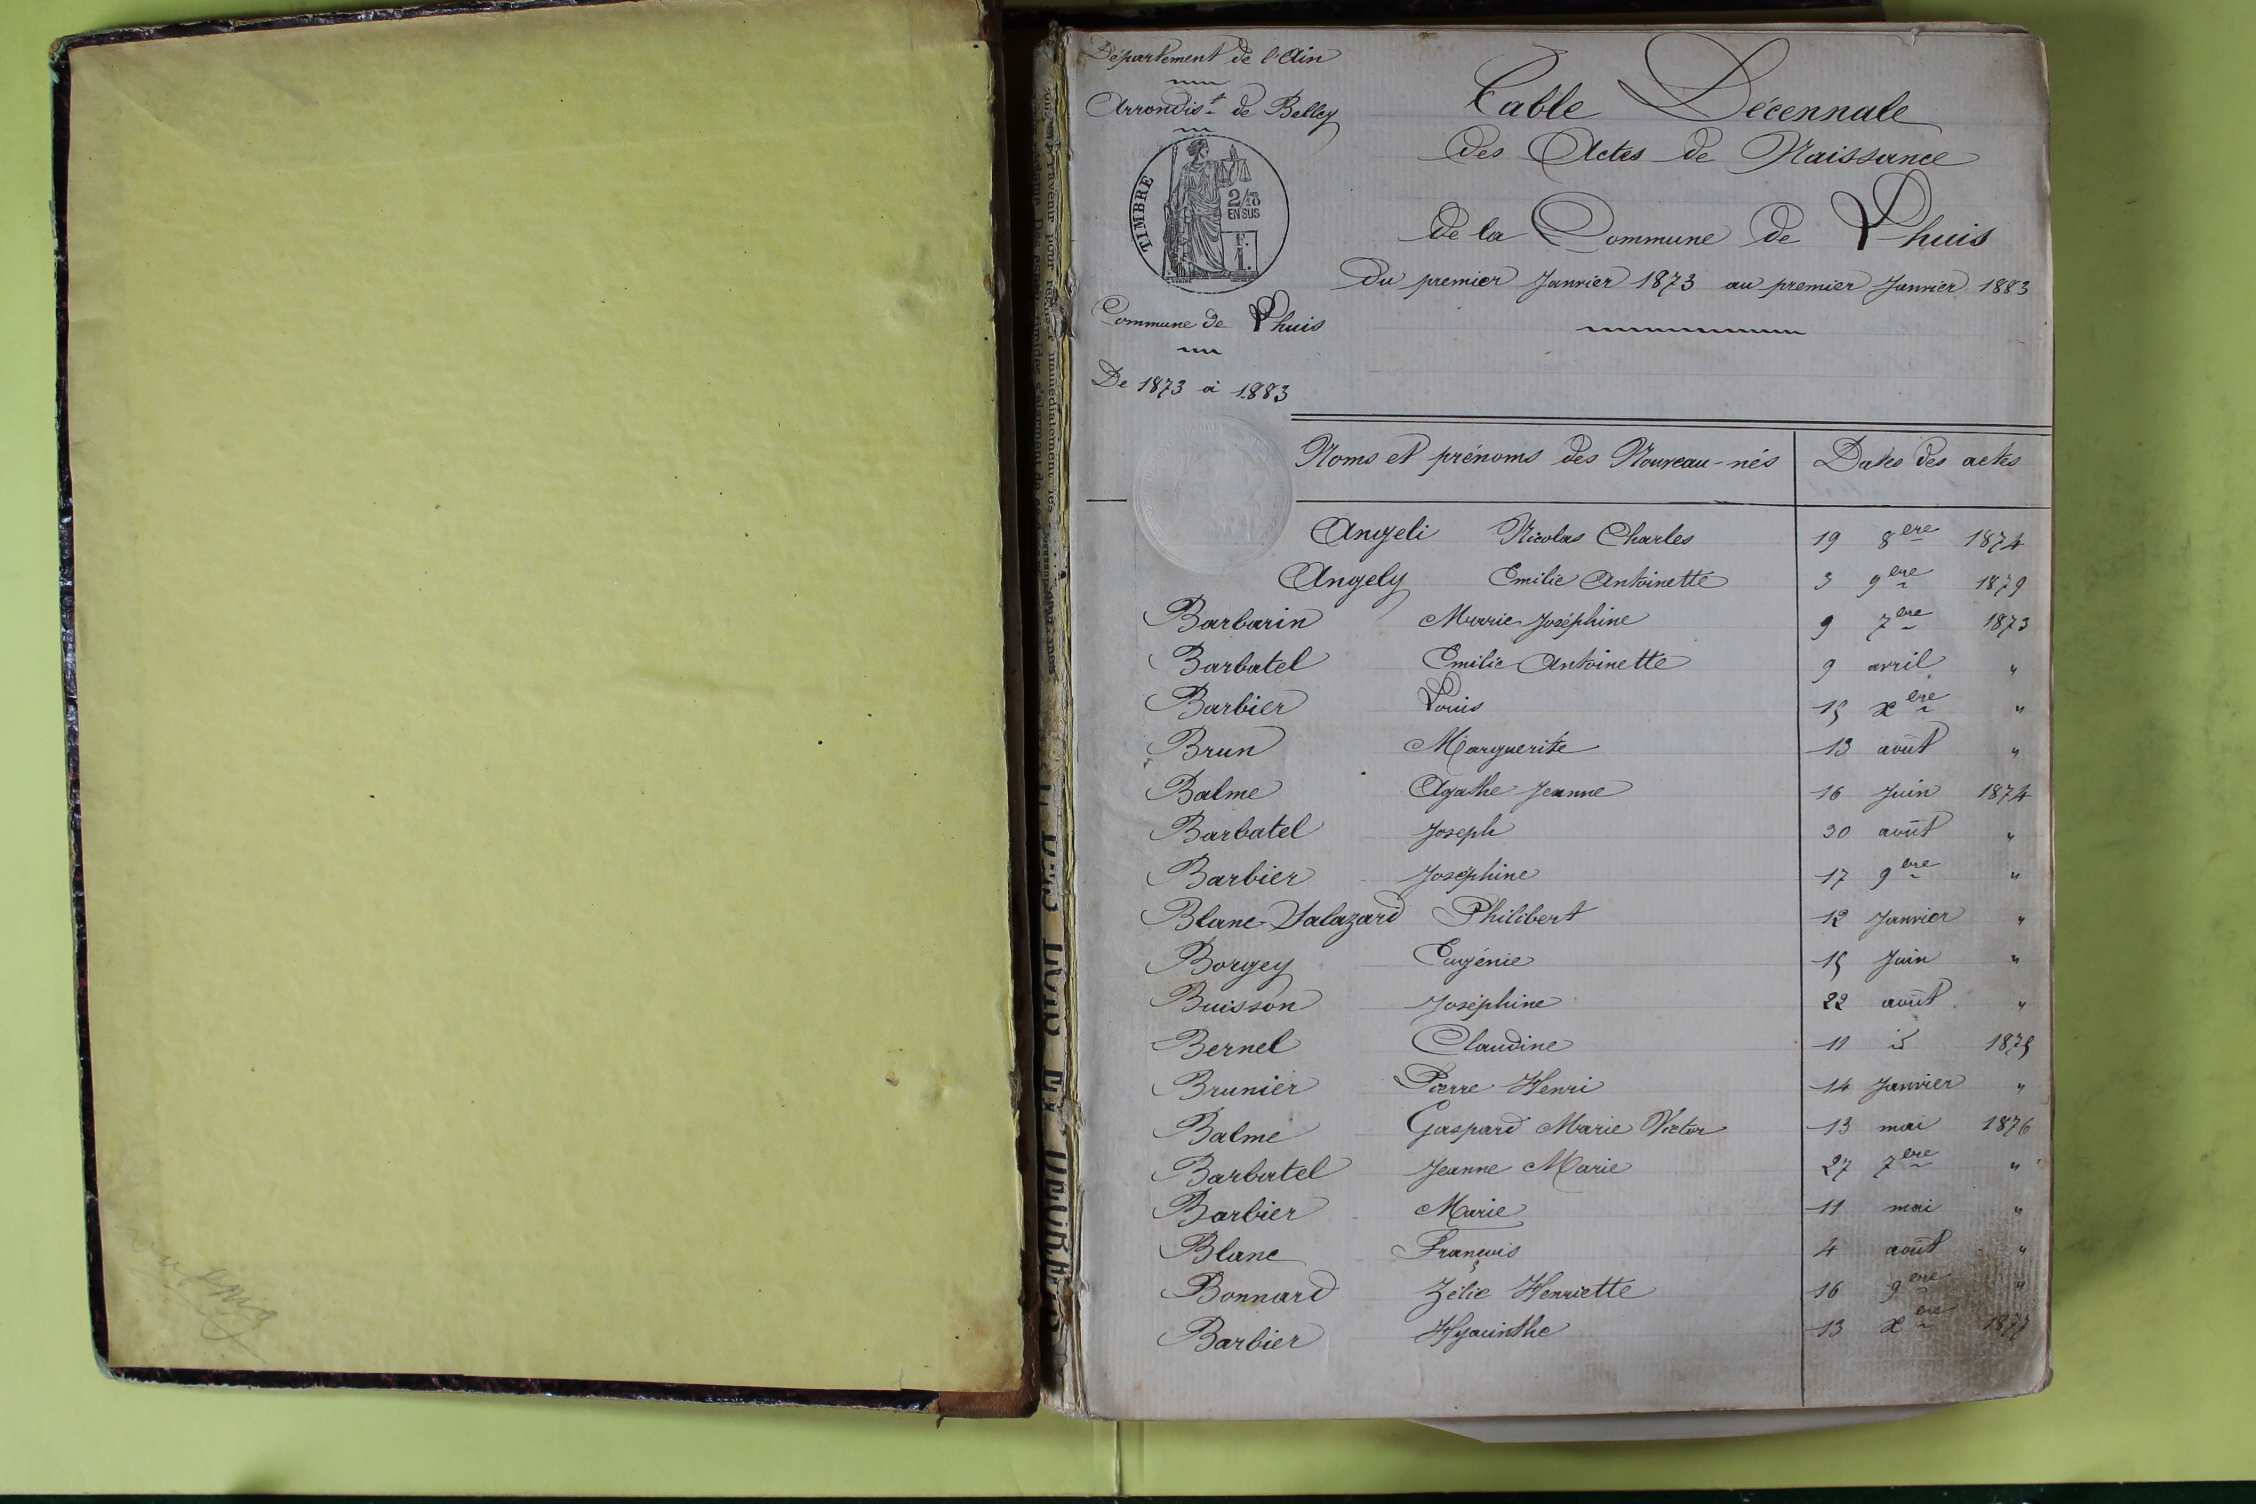 Département de l'Ain
Arrondis.t de Belley
TIMBRE
2/10
EN SUS
F.
1.
Commune de Lhuis
De 1873 à 1883
Table Décennale
des Actes de Naissance
de la Commune de Lhuis
Du premier Janvier 1873 au premier Janvier 1883
Noms et prénoms des Nouveau-nés Dates des actes
Angeli Nicolas Charles 19 8bre 1874
Angely Emilie Antoinette 3 9bre 1879
Barbarin Marie Joséphine 9 7bre 1873
Barbatel Emilie Antoinette 9 avril "
Barbier Louis 15 xbre "
Brun Marguerite 13 août "
Balme Agathe Jeanne 16 Juin 1874
Barbatel Joseph 30 août "
Barbier Joséphine 17 9bre "
Blanc-Salazard Philibert 12 Janvier "
Borgey Eugénie 15 Juin "
Buisson Joséphine 22 août "
Bernel Claudine 11 id 1875
Brunier Pierre Henri 14 Janvier "
Balme Gaspard Marie Victor 13 mai 1876
Barbatel Jeanne Marie 27 7bre "
Barbier Marie 11 mai "
Blanc François 4 août "
Bonnard Zélie Henriette 16 9bre "
Barbier Hyacinthe 13 xbre 1877